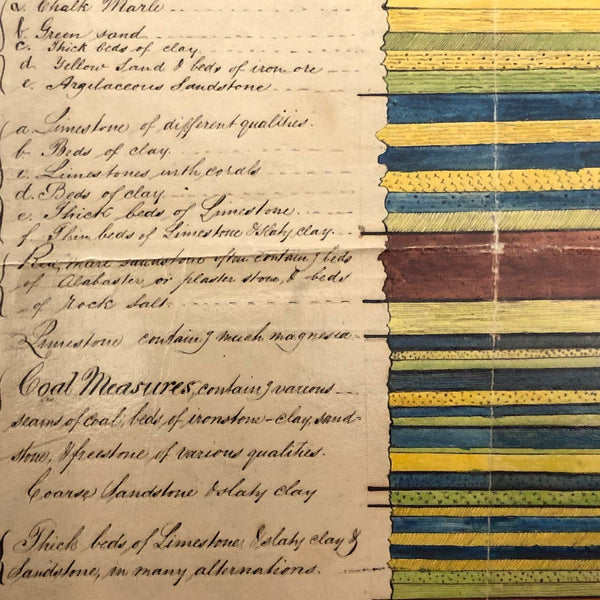 a. Chalk Marle
b. Green sand
c. Thick beds of clay.
d. Yellow Sand & beds of iron ore
e. Argilaceous Sandstone
a. Limestone of different qualities.
b. Beds of clay
c. Limestones with corals
d. Beds of clay
e. Thick beds of Limestone.
f. Thin beds of Limestone & slaty clay.
Red, marle sandstone often contain.g beds
of Alabaster, or plaster stone, & beds
of Rock Salt.
Limestone contain.g much magnesia
Coal Measures, contain.g various
seams of coal, beds of ironstone-clay, sand-
stone, & freestone of various qualities.
Coarse Sandstone & slaty clay
Thick beds of Limestone, & slaty clay &
Sandstone, in many alternations.